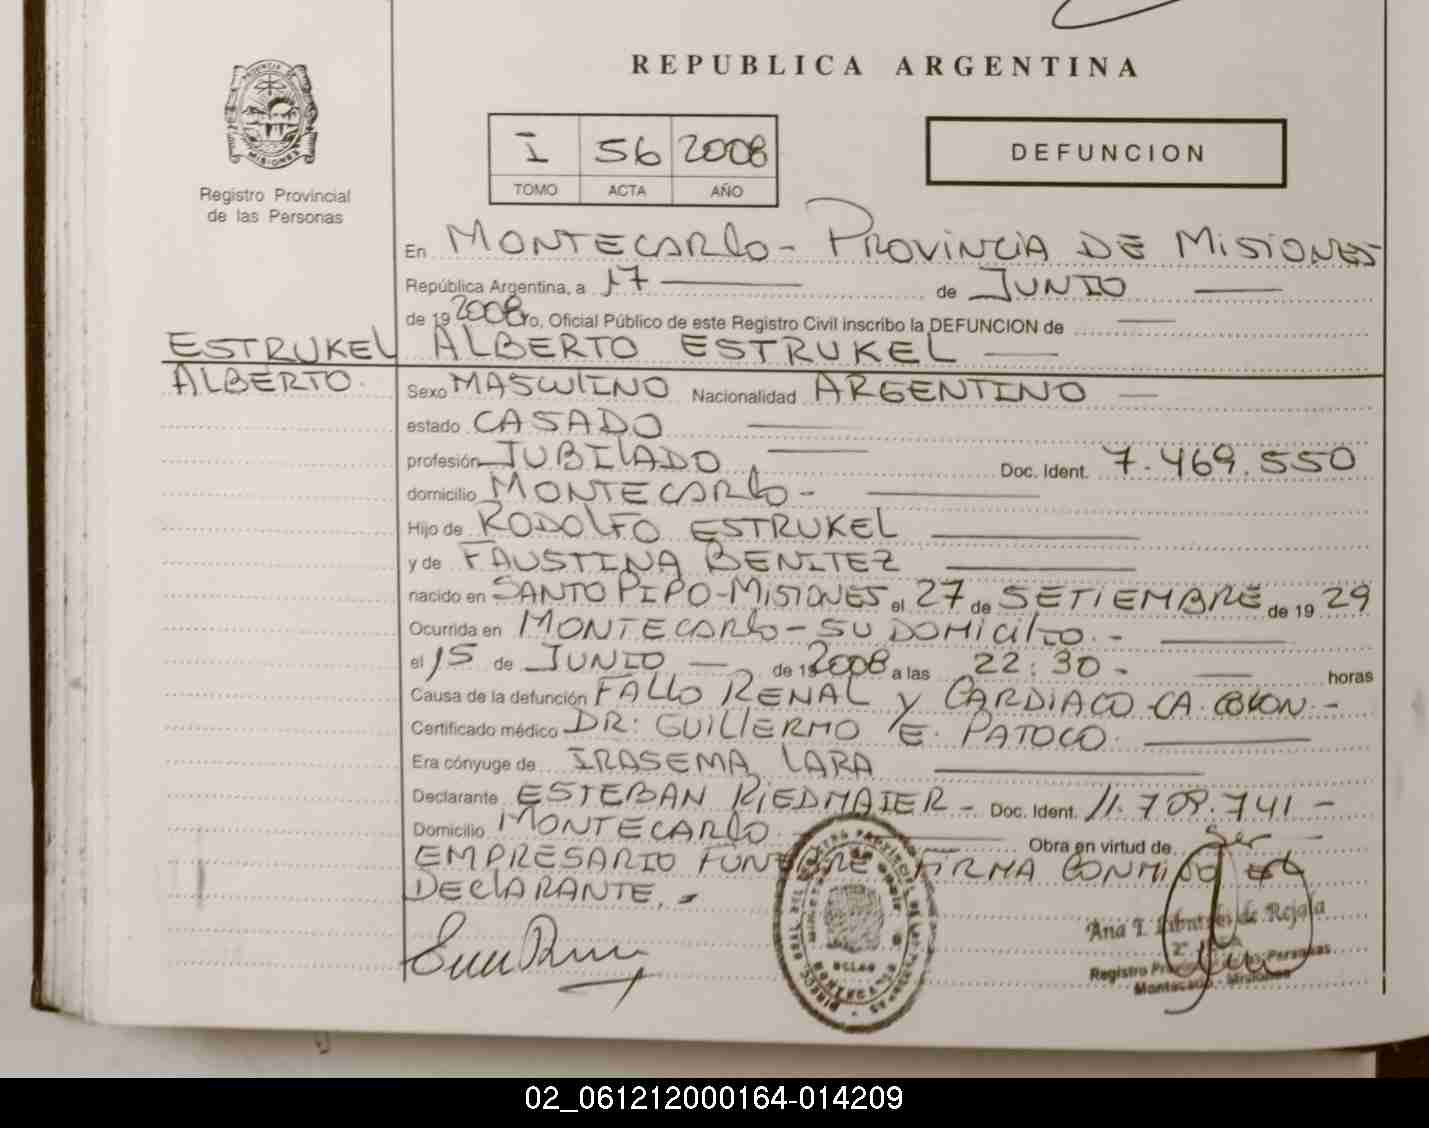 REPUBLICA ARGENTINA
PROVINCIA DE
MISIONES
Registro Provincial
de las Personas
I 56 2008
TOMO ACTA AÑO
DEFUNCION
En MONTECARLO - PROVINCIA DE MISIONES
República Argentina, a 17 de JUNIO
de 19 2008 yo, Oficial Público de este Registro Civil inscribo la DEFUNCION de
ESTRUKEL ALBERTO ESTRUKEL
ALBERTO.
Sexo MASCULINO Nacionalidad ARGENTINO
estado CASADO
profesión JUBILADO Doc. Ident. 7.469.550
domicilio MONTECARLO -
Hijo de RODOLFO ESTRUKEL
y de FAUSTINA BENITEZ
nacido en SANTO PIPO - MISIONES el 27 de SETIEMBRE de 19 29
Ocurrida en MONTECARLO - SU DOMICILIO. -
el 15 de JUNIO de 19 2008 a las 22:30 - horas
Causa de la defunción FALLO RENAL y CARDIACO - CA. COLON -
Certificado médico DR: GUILLERMO E. PATOCO.
Era cónyuge de IRASEMA LARA
Declarante ESTEBAN RIEDMAIER - Doc. Ident. 11.709.741 -
Domicilio MONTECARLO Obra en virtud de Ser
EMPRESARIO FUNEBRE FIRMA CONMIGO el
DECLARANTE. -
Ana T. de Rojala
Registro Personas
Montecarlo - Misiones
02_061212000164-014209